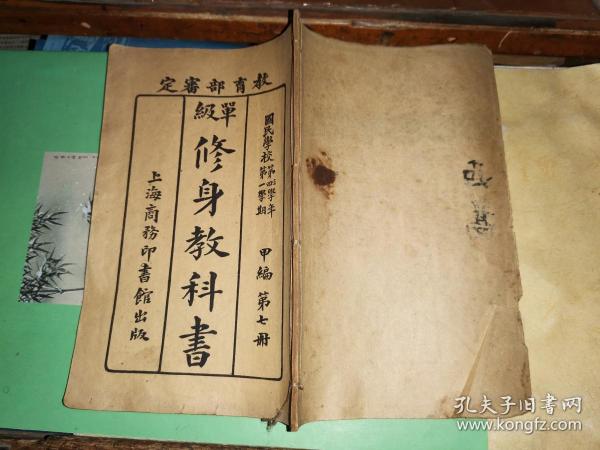 教育部審定
國民學校第四學年第一學期 甲編 第七冊
單級
修身教科書
上海商務印書館出版
孔夫子旧书网
www.kongfz.com